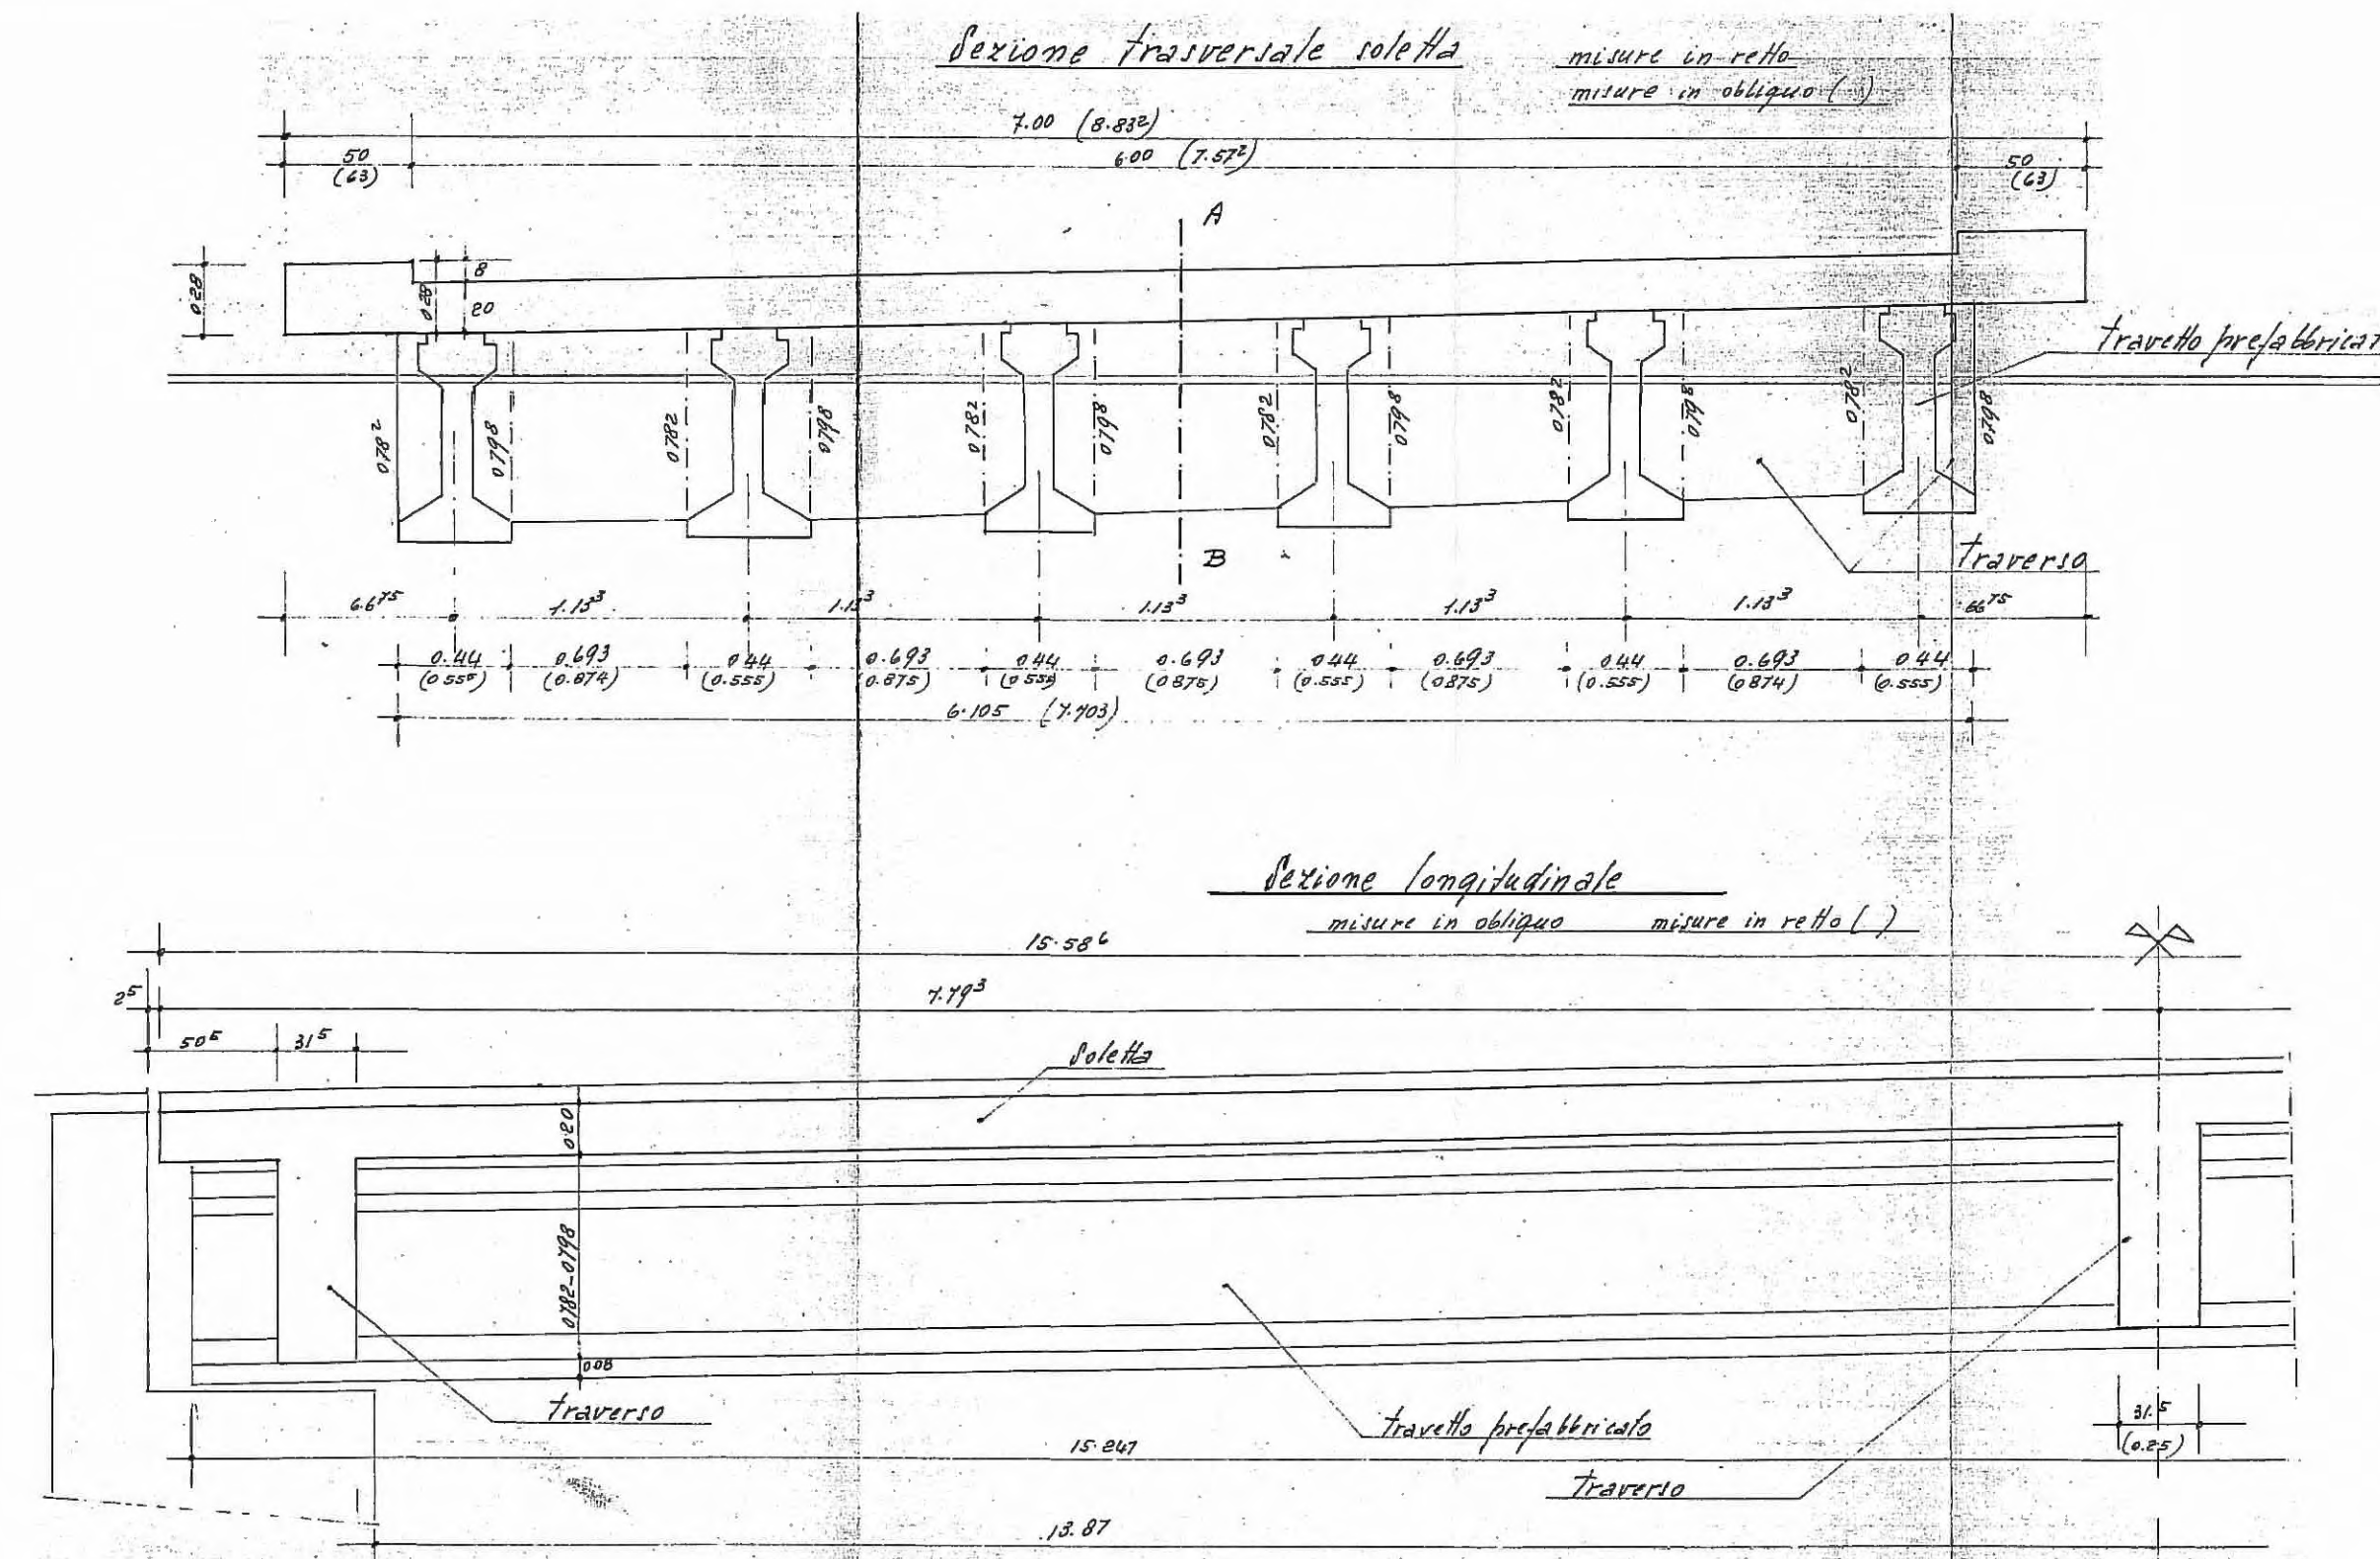 Sezione trasversale soletta
misure in retto
misure in obliquo ( )
7.00 (8.83²)
50 6.00 (7.57²) 50
(63) (63)
A
028 028 8
20
travetto prefabbricat
078² 0798 0782 0798 0782 0798 0782 0798 0782 0798 0782 0798
B
traverso
6.6⁷⁵ 1.13³ 1.13³ 1.13³ 1.13³ 1.13³ 66⁷⁵
0.44 0.693 0.44 0.693 0.44 0.693 0.44 0.693 0.44 0.693 0.44
(0.555) (0.874) (0.555) (0.875) (0.555) (0.875) (0.555) (0.875) (0.555) (0.874) (0.555)
6.105 (7.703)
Sezione longitudinale
misure in obliquo misure in retto ( )
15.58⁶
2⁵ 7.79³
50⁵ 31⁵
Soletta
0.20
0782-0798
008
traverso
travetto prefabbricato
31.⁵
(0.25)
15.247
traverso
13.87